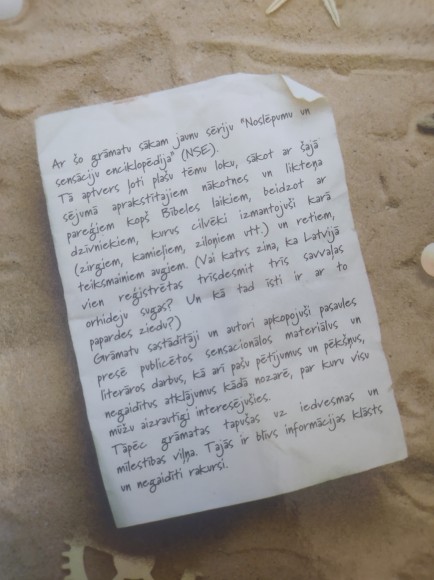 Ar šo grāmatu sākam jaunu sēriju "Noslēpumu un
sensāciju enciklopēdija" (NSE).
Tā aptvers ļoti plašu tēmu loku, sākot ar šajā
sējumā aprakstītajiem nākotnes un likteņa
pareģiem kopš Bībeles laikiem, beidzot ar
dzīvniekiem, kurus cilvēki izmantojuši karā
(zirgiem, kamieļiem, ziloņiem utt.) un retiem,
teiksmainiem augiem. (Vai katrs zina, ka Latvijā
vien reģistrētas trīsdesmit trīs savvaļas
orhideju sugas? Un kā tad īsti ir ar to
papardes ziedu?)
Grāmatu sastādītāji un autori apkopojuši pasaules
presē publicētos sensacionālos materiālus un
literāros darbus, kā arī pašu pētījumus un pēkšņus,
negaidītus atklājumus kādā nozarē, par kuru visu
mūžu aizrautīgi interesējušies.
Tāpēc grāmatas tapušas uz iedvesmas un
mīlestības viļņa. Tajās ir blīvs informācijas klāsts
un negaidīti rakursi.